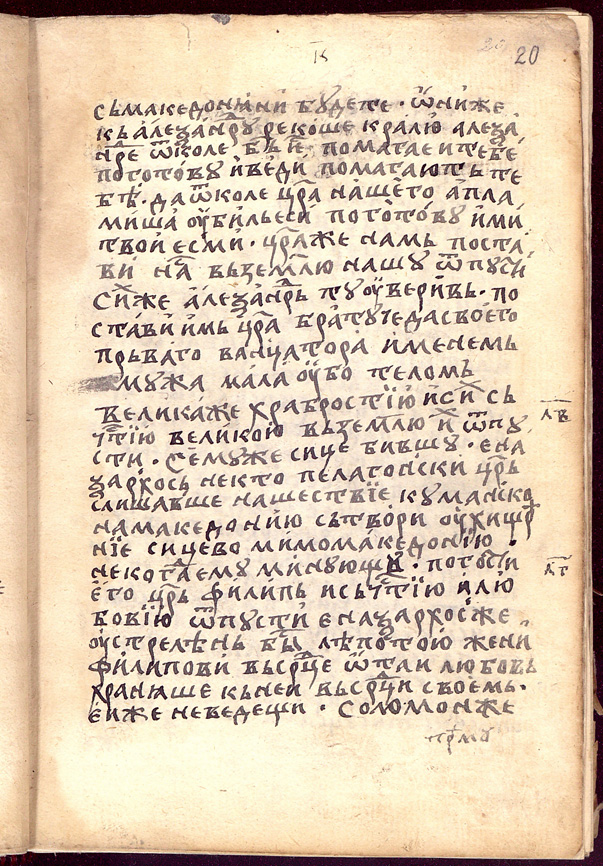 20
к҃
съмакедонꙗни бꙋдете · ѿниже
къалеѯандрꙋ рекоше кралю алеѯа
ндре ѿколе бг҃ъ помагаетитебе
поготовꙋ иведи помагаютъ те
бѣ · даѿколе цр҃а нашего апла
миша ꙋбильеси поготовꙋ ими
твои есми · цр҃аже намь поста
ви наⷣ вьземлю нашꙋ ѿпꙋсти
сиⷯже алеѯандръ тꙋꙋверивь · по
стави имь цр҃а братꙋчедасвоего
прьваго ванцатора именемь
мꙋжа мала ꙋбо теломъ
великаже храбростїю исиⷯ съ
чⷭтїю великою вьземлю иⷯ ѿпꙋ
сти · семꙋже сице бившꙋ · ена
ѯархось некто пелагонски цр҃ь
слишавше нашествїе кꙋманско
намакедонию сътвори ꙋхищре
нїе сицево мимомакедонїю ·
некогⷣаемꙋ минꙋющꙋ · погости
его цр҃ь филипь исьчⷭтїю илю
бовїю ѿпꙋсти енаѯархосже
ꙋстрелѣнь биⷭ лѣпотою жени
филипови вьсрⷣце ѿтаи любовь
хранꙗше кьнеи вьсрⷣци своемь ·
еиже неведещи · соломонже
л҃в
л҃г